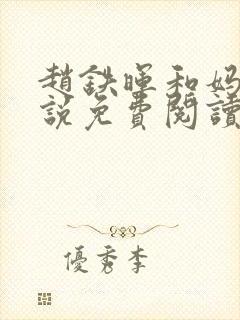 趙鉄暉和妈
說免費閱讀
優秀李